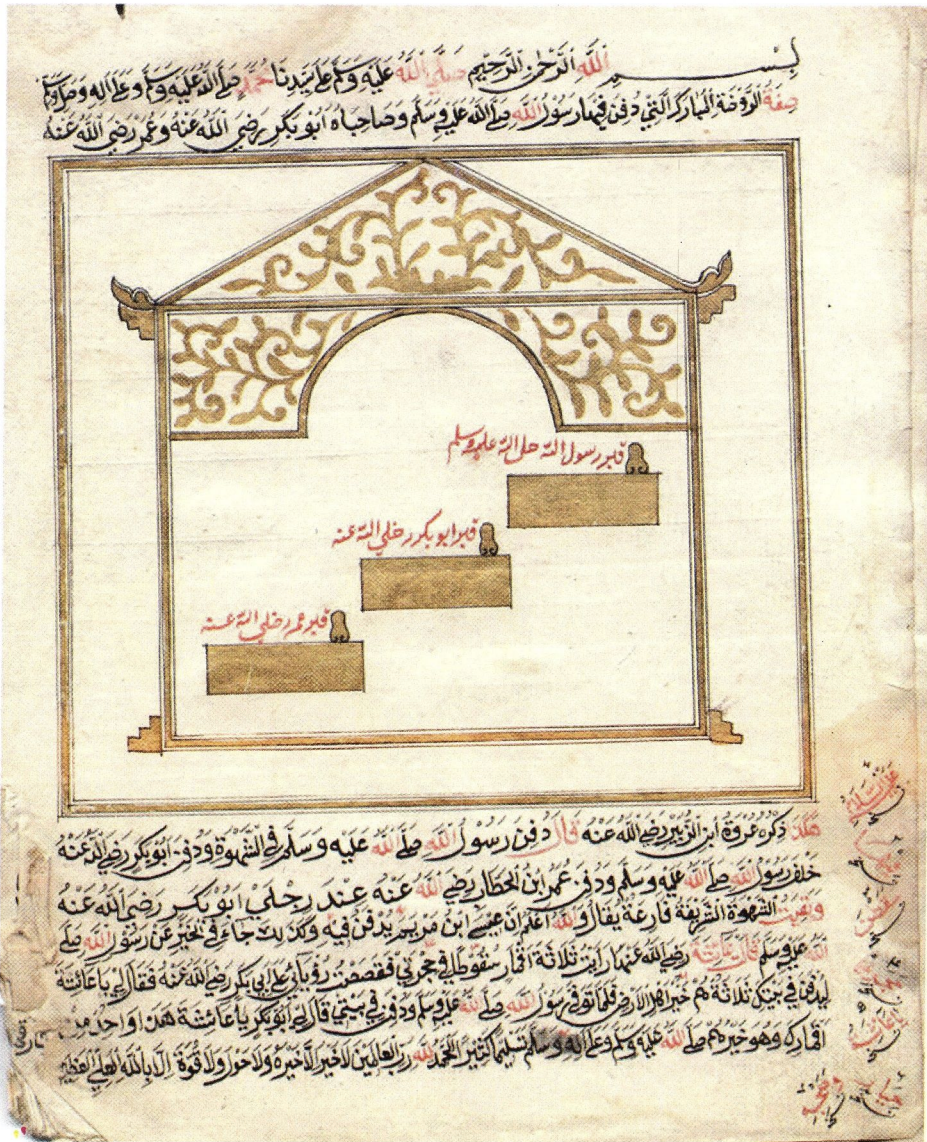 بِسْمِ اللَّهِ الرَّحْمٰنِ الرَّحِيْمِ صَلَّي اللَّهُ عَلَيْهِ وَسَلَّمَ عَلَي سَيِّدِنَا مُحَمَّدٍ صَلَّي اللَّهُ عَلَيْهِ وَسَلَّمَ وَعَلَي اٰلِهِ وَصَحْبِهِ وَسَلَّمَ
صِفَةُ الرَّوْضَةِ الْمُبَارَكَةِ الَّتِيْ دُفِنَ فِيْهَا رَسُوْلُ اللَّهِ صَلَّي اللَّهُ عَلَيْهِ وَسَلَّمَ وَصَاحِبَاهُ اَبُوْ بَكْرٍ رَضِيَ اللَّهُ عَنْهُ وَعُمَرُ رَضِيَ اللَّهُ عَنْهُ
قبر رسول الله صلى الله عليه وسلم
قبر ابو بكر رضلي الله عنه
قبر عمر رضلي الله عنه
هٰكَذَا ذَكَرَهُ عُرْوَةُ ابْنُ الزُّبَيْرِ رَضِيَ اللَّهُ عَنْهُ قَالَ دُفِنَ رَسُوْلُ اللَّهِ صَلَّي اللَّهُ عَلَيْهِ وَسَلَّمَ فِي السَّهْوَةِ وَدُفِنَ اَبُوْ بَكْرٍ رَضِيَ اللَّهُ عَنْهُ
خَلْفَ رَسُوْلِ اللَّهِ صَلَّي اللَّهُ عَلَيْهِ وَسَلَّمَ وَدُفِنَ عُمَرُ ابْنُ الْخَطَّابِ رَضِيَ اللَّهُ عَنْهُ عِنْدَ رِجْلَيْ اَبُوْ بَكْرٍ رَضِيَ اللَّهُ عَنْهُ
وَبَقِيَتِ السَّهْوَةُ الشَّرِيْفَةُ فَارِغَةً يُقَالُ وَاللَّهُ اَعْلَمُ اَنَّ عِيْسٰي ابْنَ مَرْيَمَ يُدْفَنُ فِيْهِ وَكَذٰلِكَ جَاءَ فِي الْخَبَرِ عَنْ رَسُوْلِ اللَّهِ صَلَّي
اللَّهُ عَلَيْهِ وَسَلَّمَ قَالَتْ عَائِشَةُ رَضِيَ اللَّهُ عَنْهَا رَاَيْتُ ثَلَاثَةَ اَقْمَارٍ سُقُوْطًا فِي حُجْرَتِيْ فَقَصَصْتُ رُؤْيَايَ عَلَي اَبِيْ بَكْرٍ رَضِيَ اللَّهُ عَنْهُ فَقَالَ لِيْ يَا عَائِشَةُ
لَيُدْفَنُ فِي بَيْتِكِ ثَلَاثَةٌ هُمْ خَيْرُ اَهْلِ الْاَرْضِ فَلَمَّا تُوُفِّيَ رَسُوْلُ اللَّهِ صَلَّي اللَّهُ عَلَيْهِ وَسَلَّمَ وَدُفِنَ فِي بَيْتِيْ قَالَ لِيْ اَبُوْ بَكْرٍ يَا عَائِشَةُ هٰذَا وَاحِدٌ مِنْ
اَقْمَارِكِ وَهُوَ خَيْرُهُمْ صَلَّي اللَّهُ عَلَيْهِ وَسَلَّمَ وَعَلَي اٰلِهِ وَسَلَّمَ تَسْلِيْمًا كَثِيْرًا الْحَمْدُ لِلَّهِ رَبِّ الْعَالَمِيْنَ وَلَا حَوْلَ وَلَا قُوَّةَ اِلَّا بِاللَّهِ الْعَلِيِّ الْعَظِيْمِ